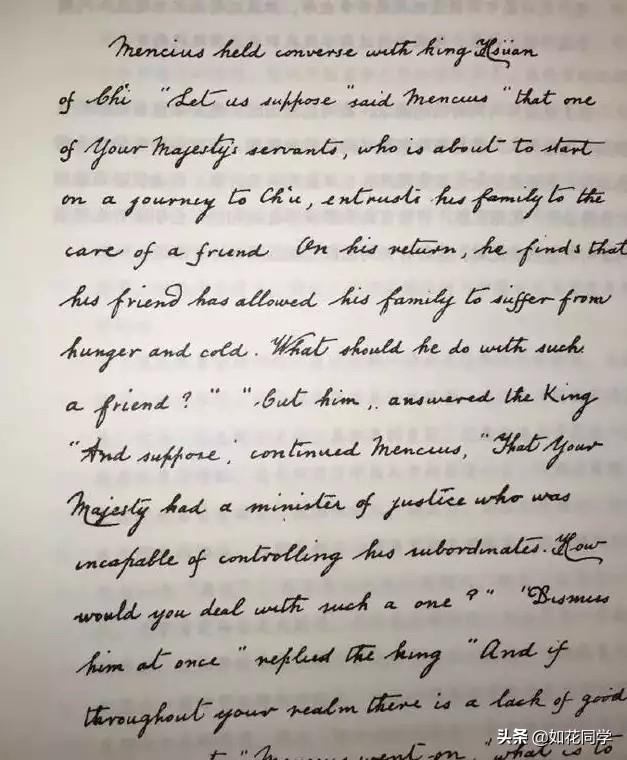 Mencius held converse with king Hsüan
of Ch'i "Let us suppose" said Mencius "that one
of Your Majesty's servants, who is about to start
on a journey to Ch'u, entrusts his family to the
care of a friend On his return, he finds that
his friend has allowed his family to suffer from
hunger and cold. What should he do with such
a friend?" "Cut him,. answered the King
"And suppose', continued Mencius, "That Your
Majesty had a minister of justice who was
incapable of controlling his subordinates. How
would you deal with such a one?" "Dismiss
him at once" replied the king "And if
throughout your realm there is a lack of good
"Mencius went on, "what is to
头条 @如花同学